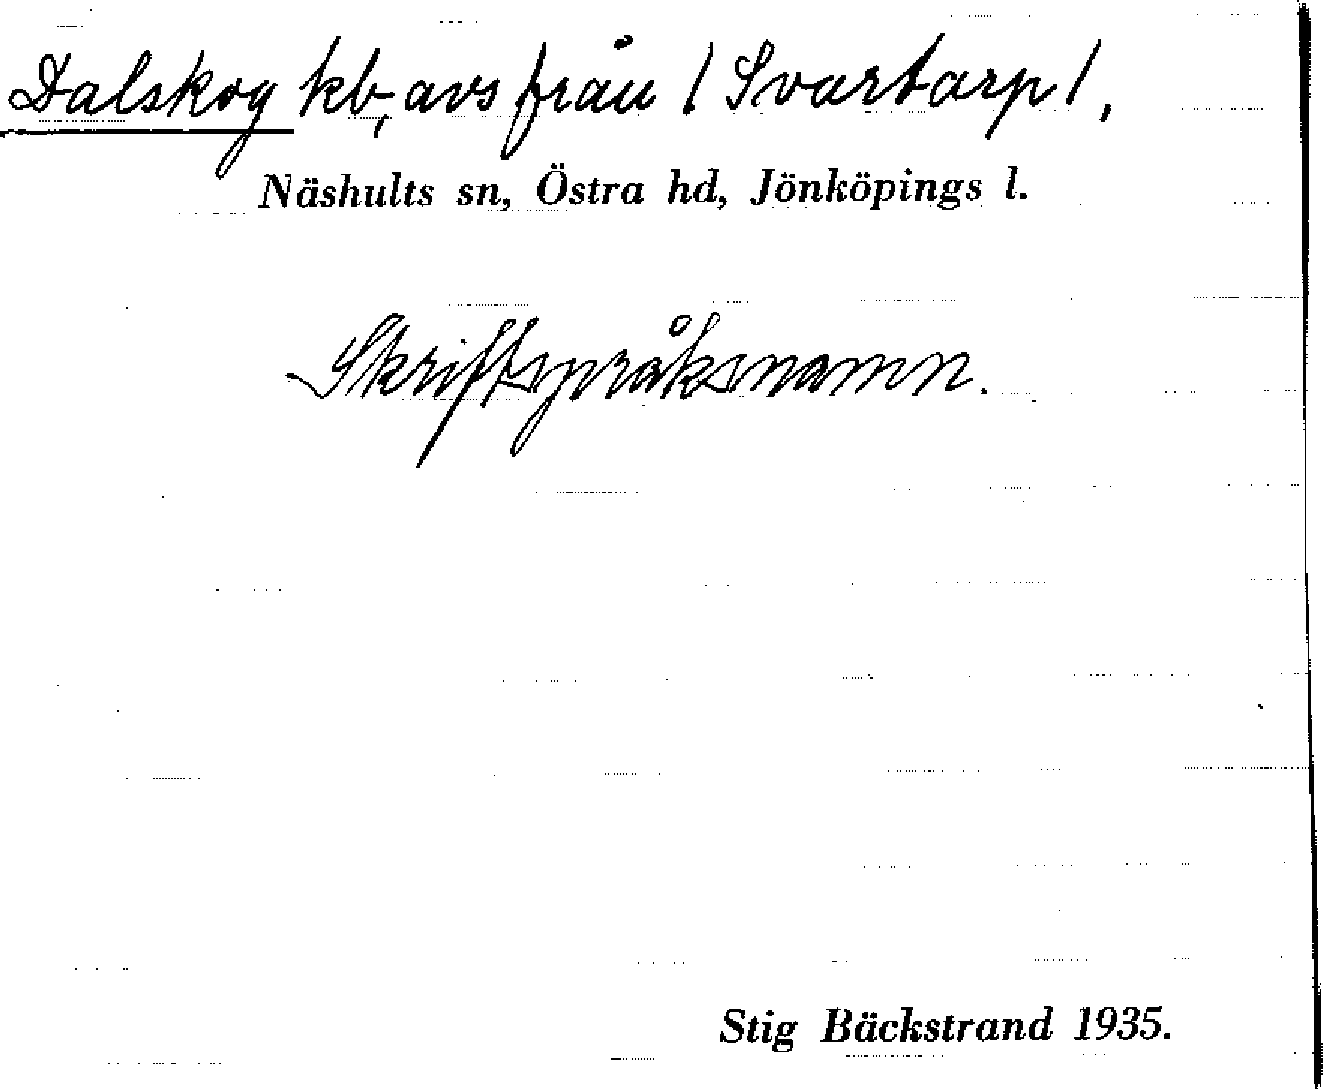 Dalskog kb, avs från / Svartarp /,
Näshults sn, Östra hd, Jönköpings l.
Skriftspråksnamn.
Stig Bäckstrand 1935.